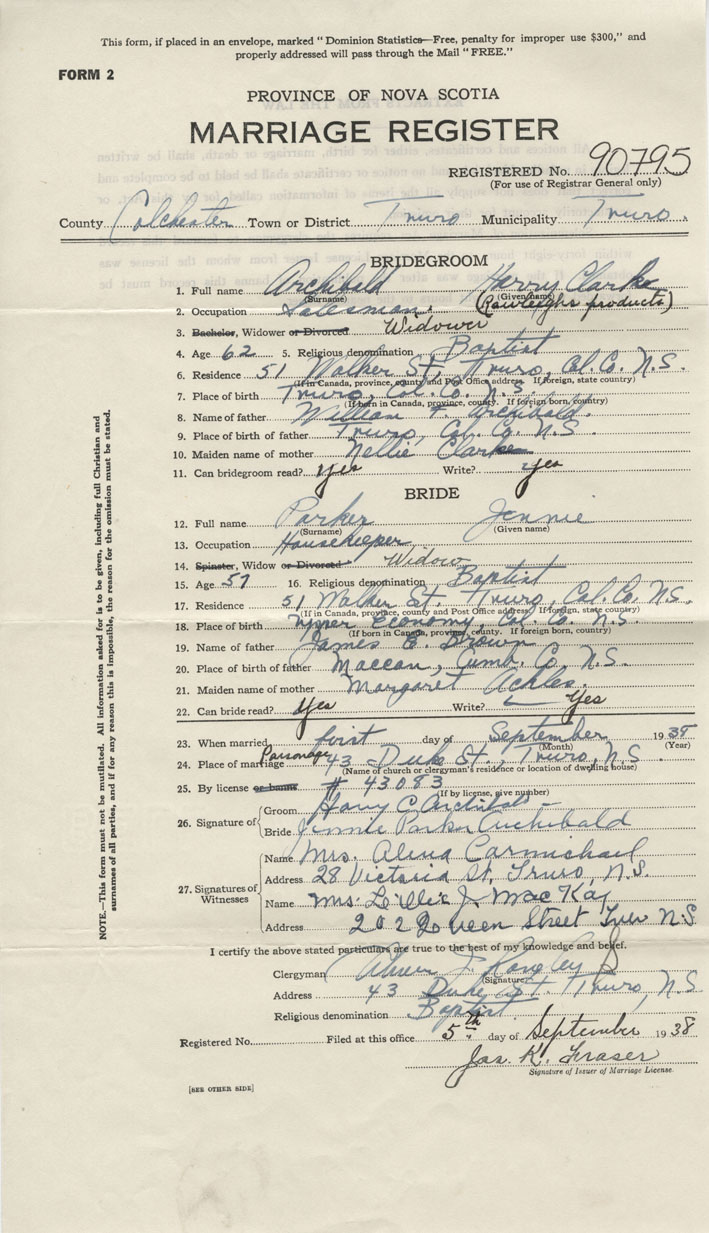 This form, if placed in an envelope, marked "Dominion Statistics—Free, penalty for improper use $300," and
properly addressed will pass through the Mail "FREE."
FORM 2
PROVINCE OF NOVA SCOTIA
MARRIAGE REGISTER
REGISTERED No. 90795
(For use of Registrar General only)
County Colchester Town or District Truro Municipality Truro
BRIDEGROOM
1. Full name Archibald Harry Clarke
(Surname) (Given name)
2. Occupation Salesman (Rawleighs products)
3. Bachelor, Widower or Divorced Widower
4. Age 62 5. Religious denomination Baptist
6. Residence 51 Walker St, Truro, Col. Co. N.S.
(If in Canada, province, county and Post Office address. If foreign, state country)
7. Place of birth Truro, Col. Co. N.S.
(If born in Canada, province, county. If foreign born, country)
8. Name of father William F. Archibald.
9. Place of father Truro, Col. Co. N.S.
10. Maiden name of mother Nellie Clarke
11. Can bridegroom read? Yes Write? Yes
BRIDE
12. Full name Parker Jennie
(Surname) (Given name)
13. Occupation Housekeeper
14. Spinster, Widow or Divorced Widow
15. Age 57 16. Religious denomination Baptist
17. Residence 51 Walker St. Truro, Col. Co. N.S.
(If in Canada, province, county and Post Office address. If foreign, state country)
18. Place of birth Upper Economy, Col. Co. N.S.
(If born in Canada, province, county. If foreign born, country)
19. Name of father James E. Brown
20. Place of birth of father Maccan, Cumb. Co. N.S.
21. Maiden name of mother Margaret Ackles.
22. Can bride read? Yes Write? Yes
23. When married first day of September 1938
(Month) (Year)
24. Place of marriage Parsonage 43 Duke St., Truro, N.S.
(Name of church or clergyman's residence or location of dwelling house)
25. By license or banns # 43083
(If by license, give number)
26. Signature of Groom Harry C. Archibald
Bride Jennie Parker Archibald
27. Signatures of Witnesses
Name Mrs. Alena Carmichael
Address 28 Victoria St, Truro, N.S.
Name Mrs. Lillie J. MacKay
Address 202 Queen Street Truro N.S
I certify the above stated particulars are true to the best of my knowledge and belief.
Clergyman
(Signature)
Address 43 Duke St. Truro, N.S.
Religious denomination Baptist
Registered No. Filed at this office 5th day of September 1938
Jas. K. Fraser
Signature of Issuer of Marriage License.
[SEE OTHER SIDE]
NOTE.—This form must not be mutilated. All information asked for is to be given, including full Christian and
surnames of all parties, and if for any reason this is impossible, the reason for the omission must be stated.